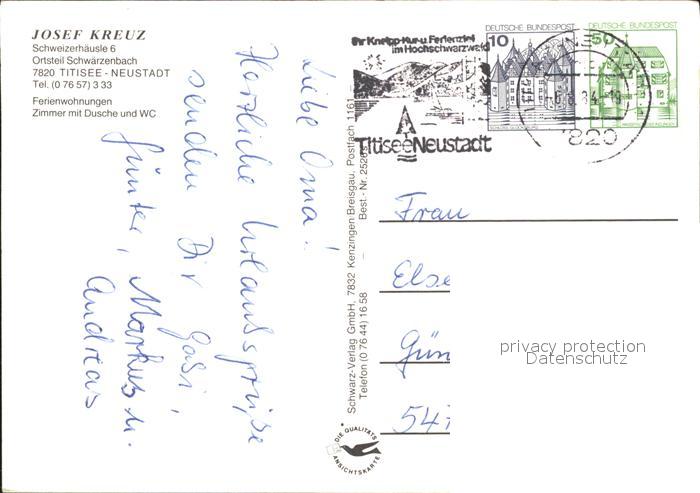 JOSEF KREUZ
Schweizerhäusle 6
Ortsteil Schwärzenbach
7820 TITISEE - NEUSTADT
Tel. (0 76 57) 3 33
Ferienwohnungen
Zimmer mit Dusche und WC
Liebe Oma!
Herzliche Urlaubsgrüße
senden Dir Gabi,
Günter, Markus u.
Andreas
Schwarz-Verlag GmbH, 7832 Kenzingen Breisgau, Postfach 1161
Telefon (0 76 44) 16 58
Best.-Nr. 2526
DIE QUALITÄTS
ANSICHTSKARTE
Ihr Kneipp-Kur-u. Ferienziel
im Hochschwarzwald
Titisee Neustadt
DEUTSCHE BUNDESPOST
10
DEUTSCHE BUNDESPOST
50
7820
Frau
Else
Gün
54
privacy protection
Datenschutz